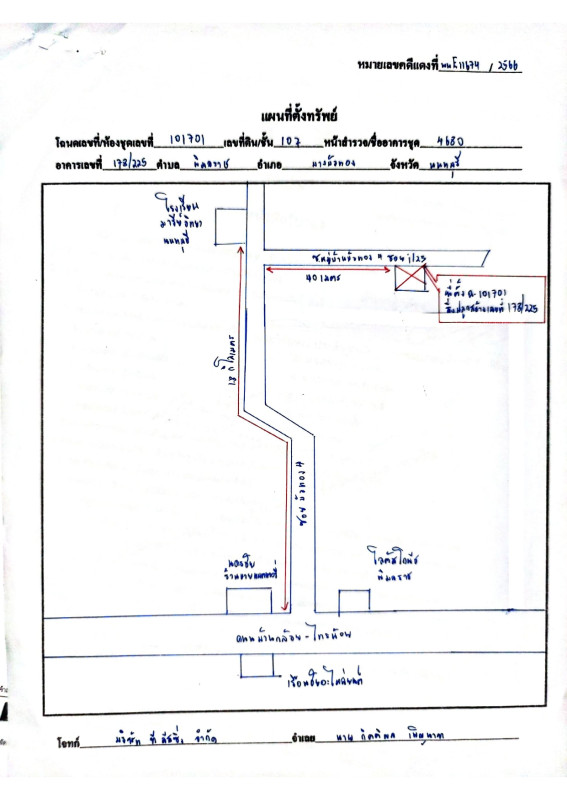 หมายเลขคดีแดงที่ ผบE11674 / 2566
แผนที่ตั้งทรัพย์
โฉนดเลขที่/ห้องชุดเลขที่ 101701 เลขที่ดิน/ชั้น 107 หน้าสำรวจ/ชื่ออาคารชุด 4680
อาคารเลขที่ 178/225 ตำบล พิมลราช อำเภอ บางบัวทอง จังหวัด นนทบุรี
โรงเรียน
มารีย์วิทยา
นนทบุรี
ซ.หมู่บ้านบัวทอง 4 ซอย 1/23
40 เมตร
ที่ตั้ง ฉ. 101701
สิ่งปลูกสร้างเลขที่ 178/225
1.8 กิโลเมตร
ซอย บัวทอง 4
โลตัสโกเฟรช
พิมลราช
ถนนบ้านกล้วย - ไทรน้อย
โจทก์ บริษัท ที ลีสซิ่ง จำกัด จำเลย นาย กิตติพล